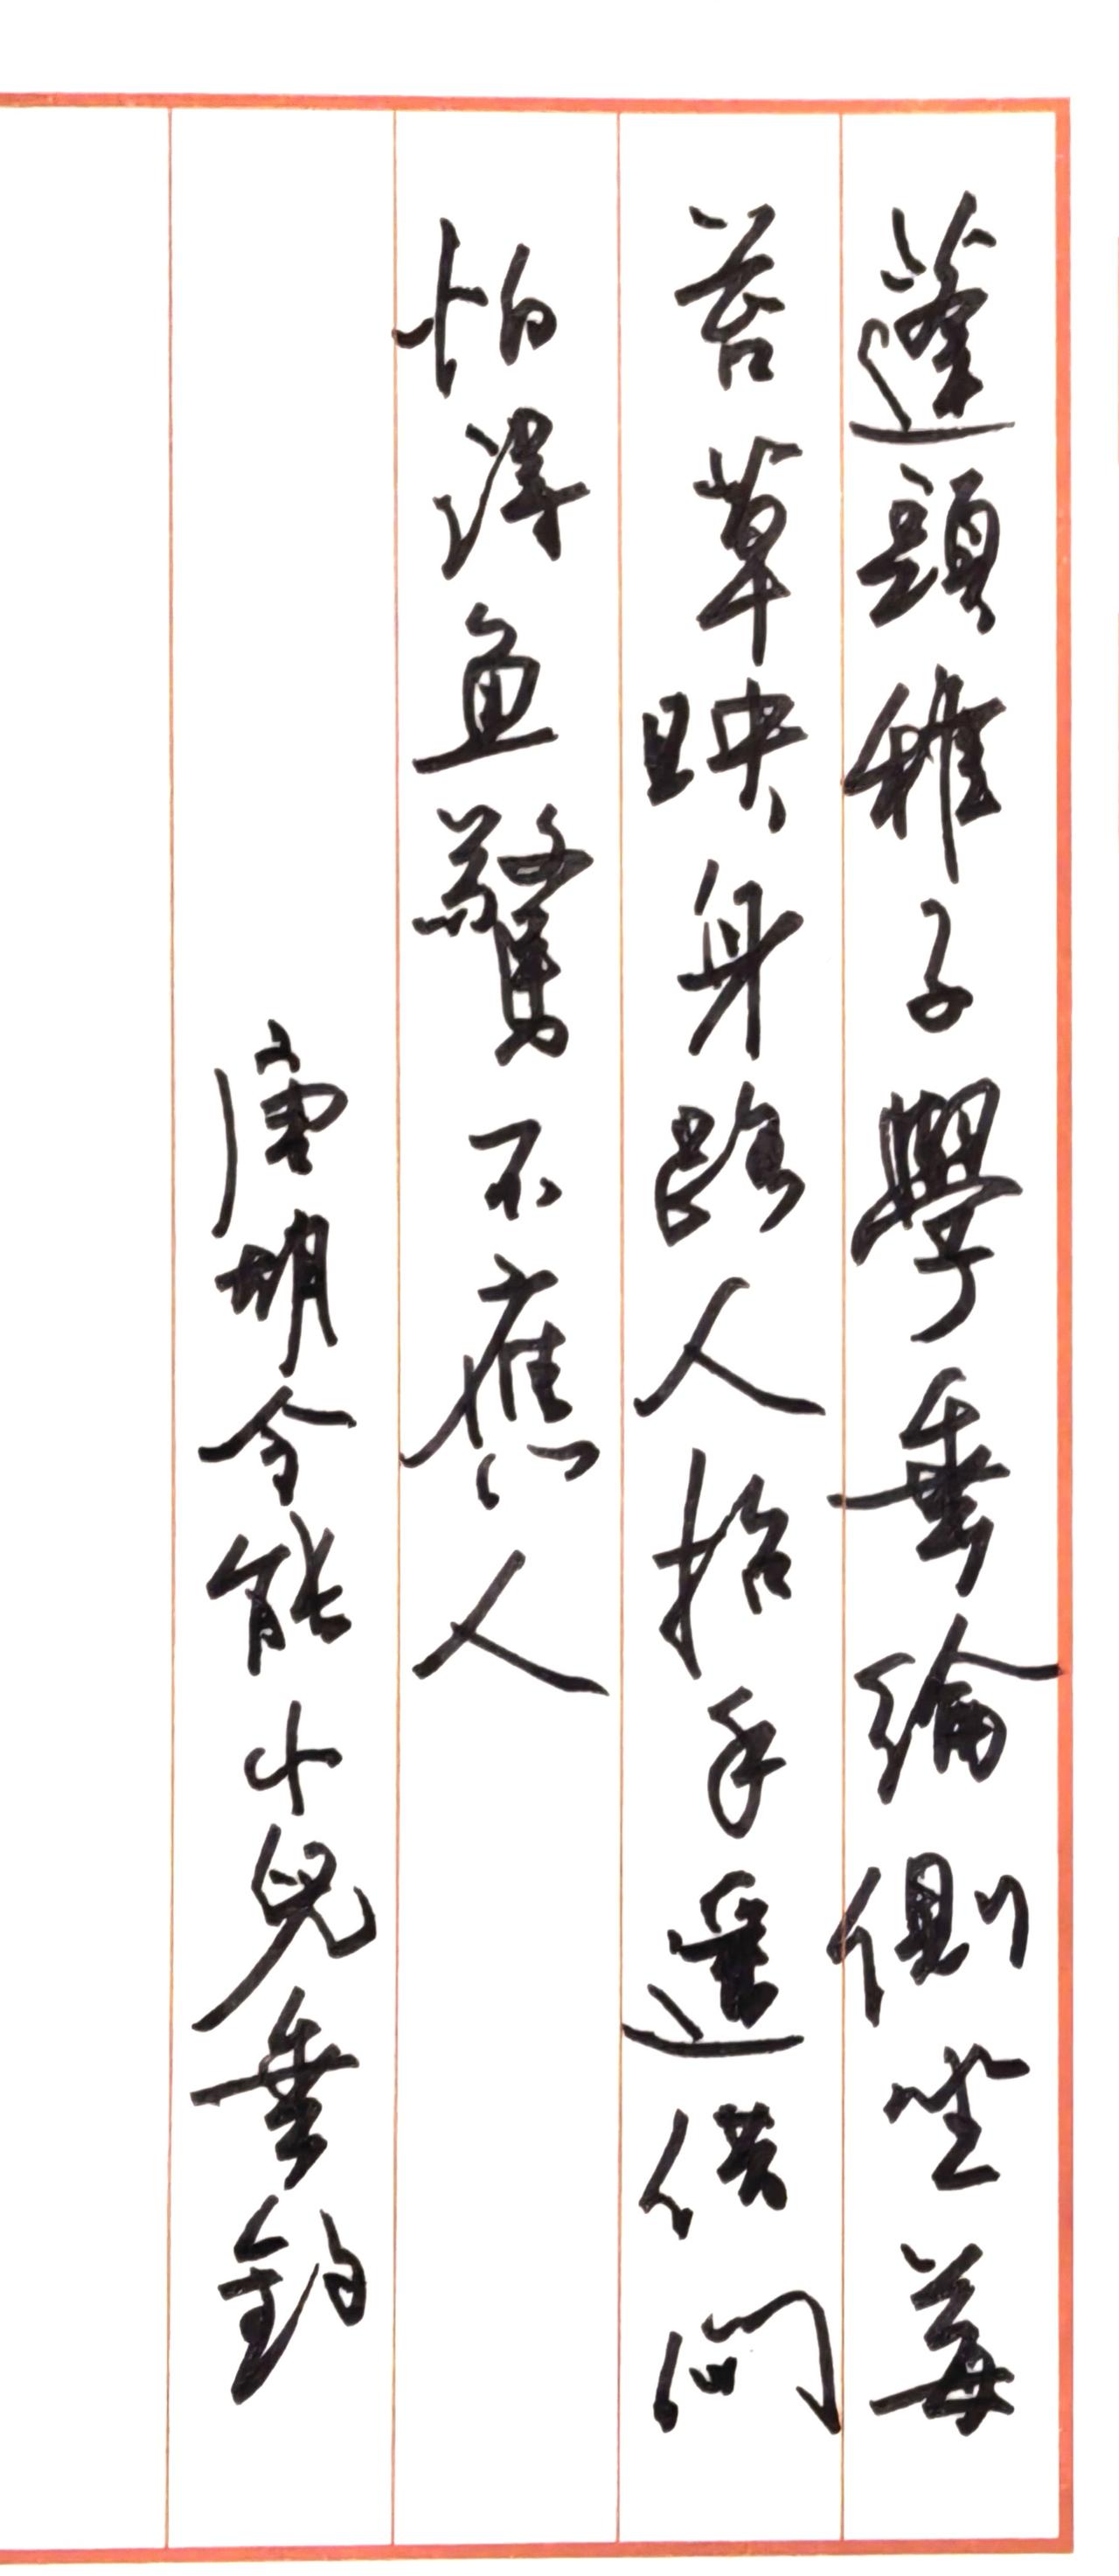 蓬頭稚子學垂綸側坐莓
苔草映身路人招手遥借問
怕得鱼驚不應人
唐胡令能小兒垂釣